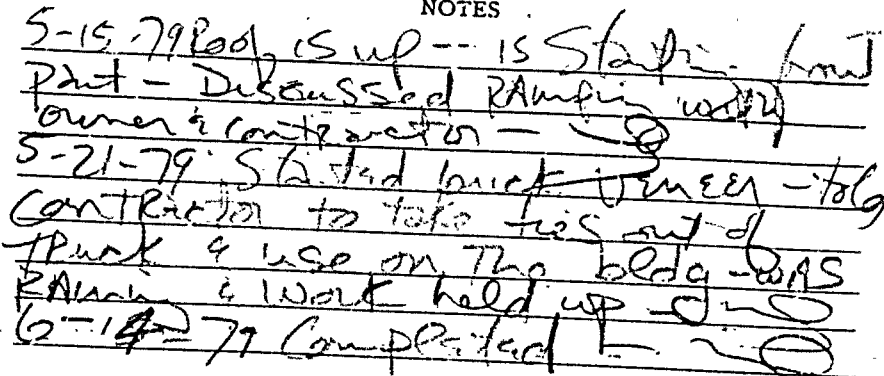 NOTES
5-15-79 Roof is up -- is Starting front
Part - Discussed RAmping with
owner & contractor -
5-21-79 Started brick veneer - told
ContRactor to take ties out of
TRunk & use on The bldg - WAS
RAining & Work held up
6-14-79 Completed